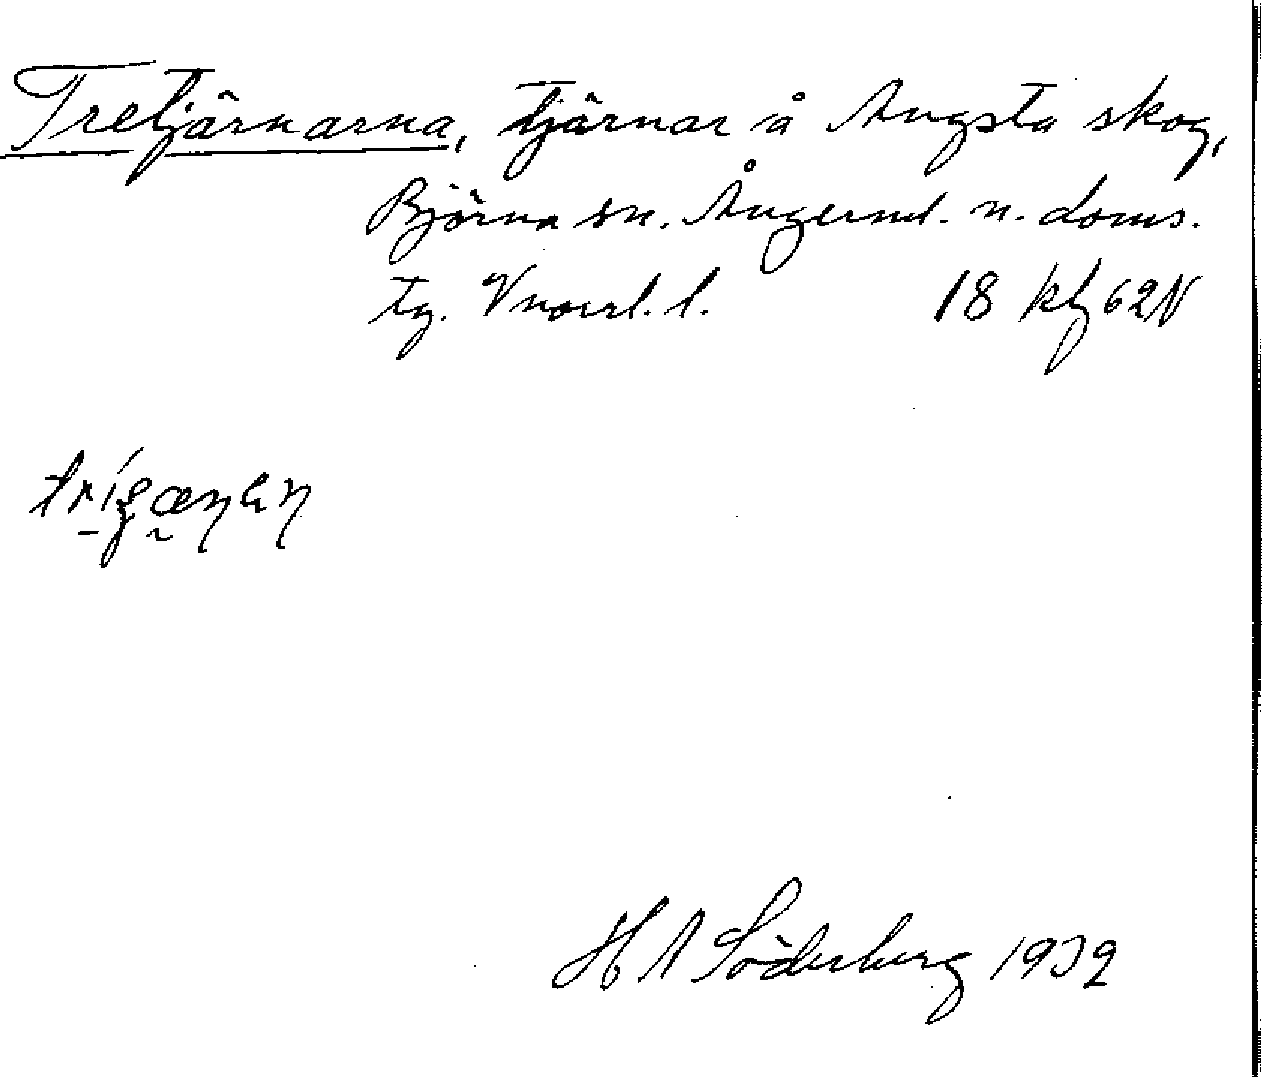 Tretjärnarna, tjärnar å Angsta skog,
Björna sn. Ångerml. n. doms.
tg. Vnorrl. l. 18 kl 62N
H A Söderberg 1932